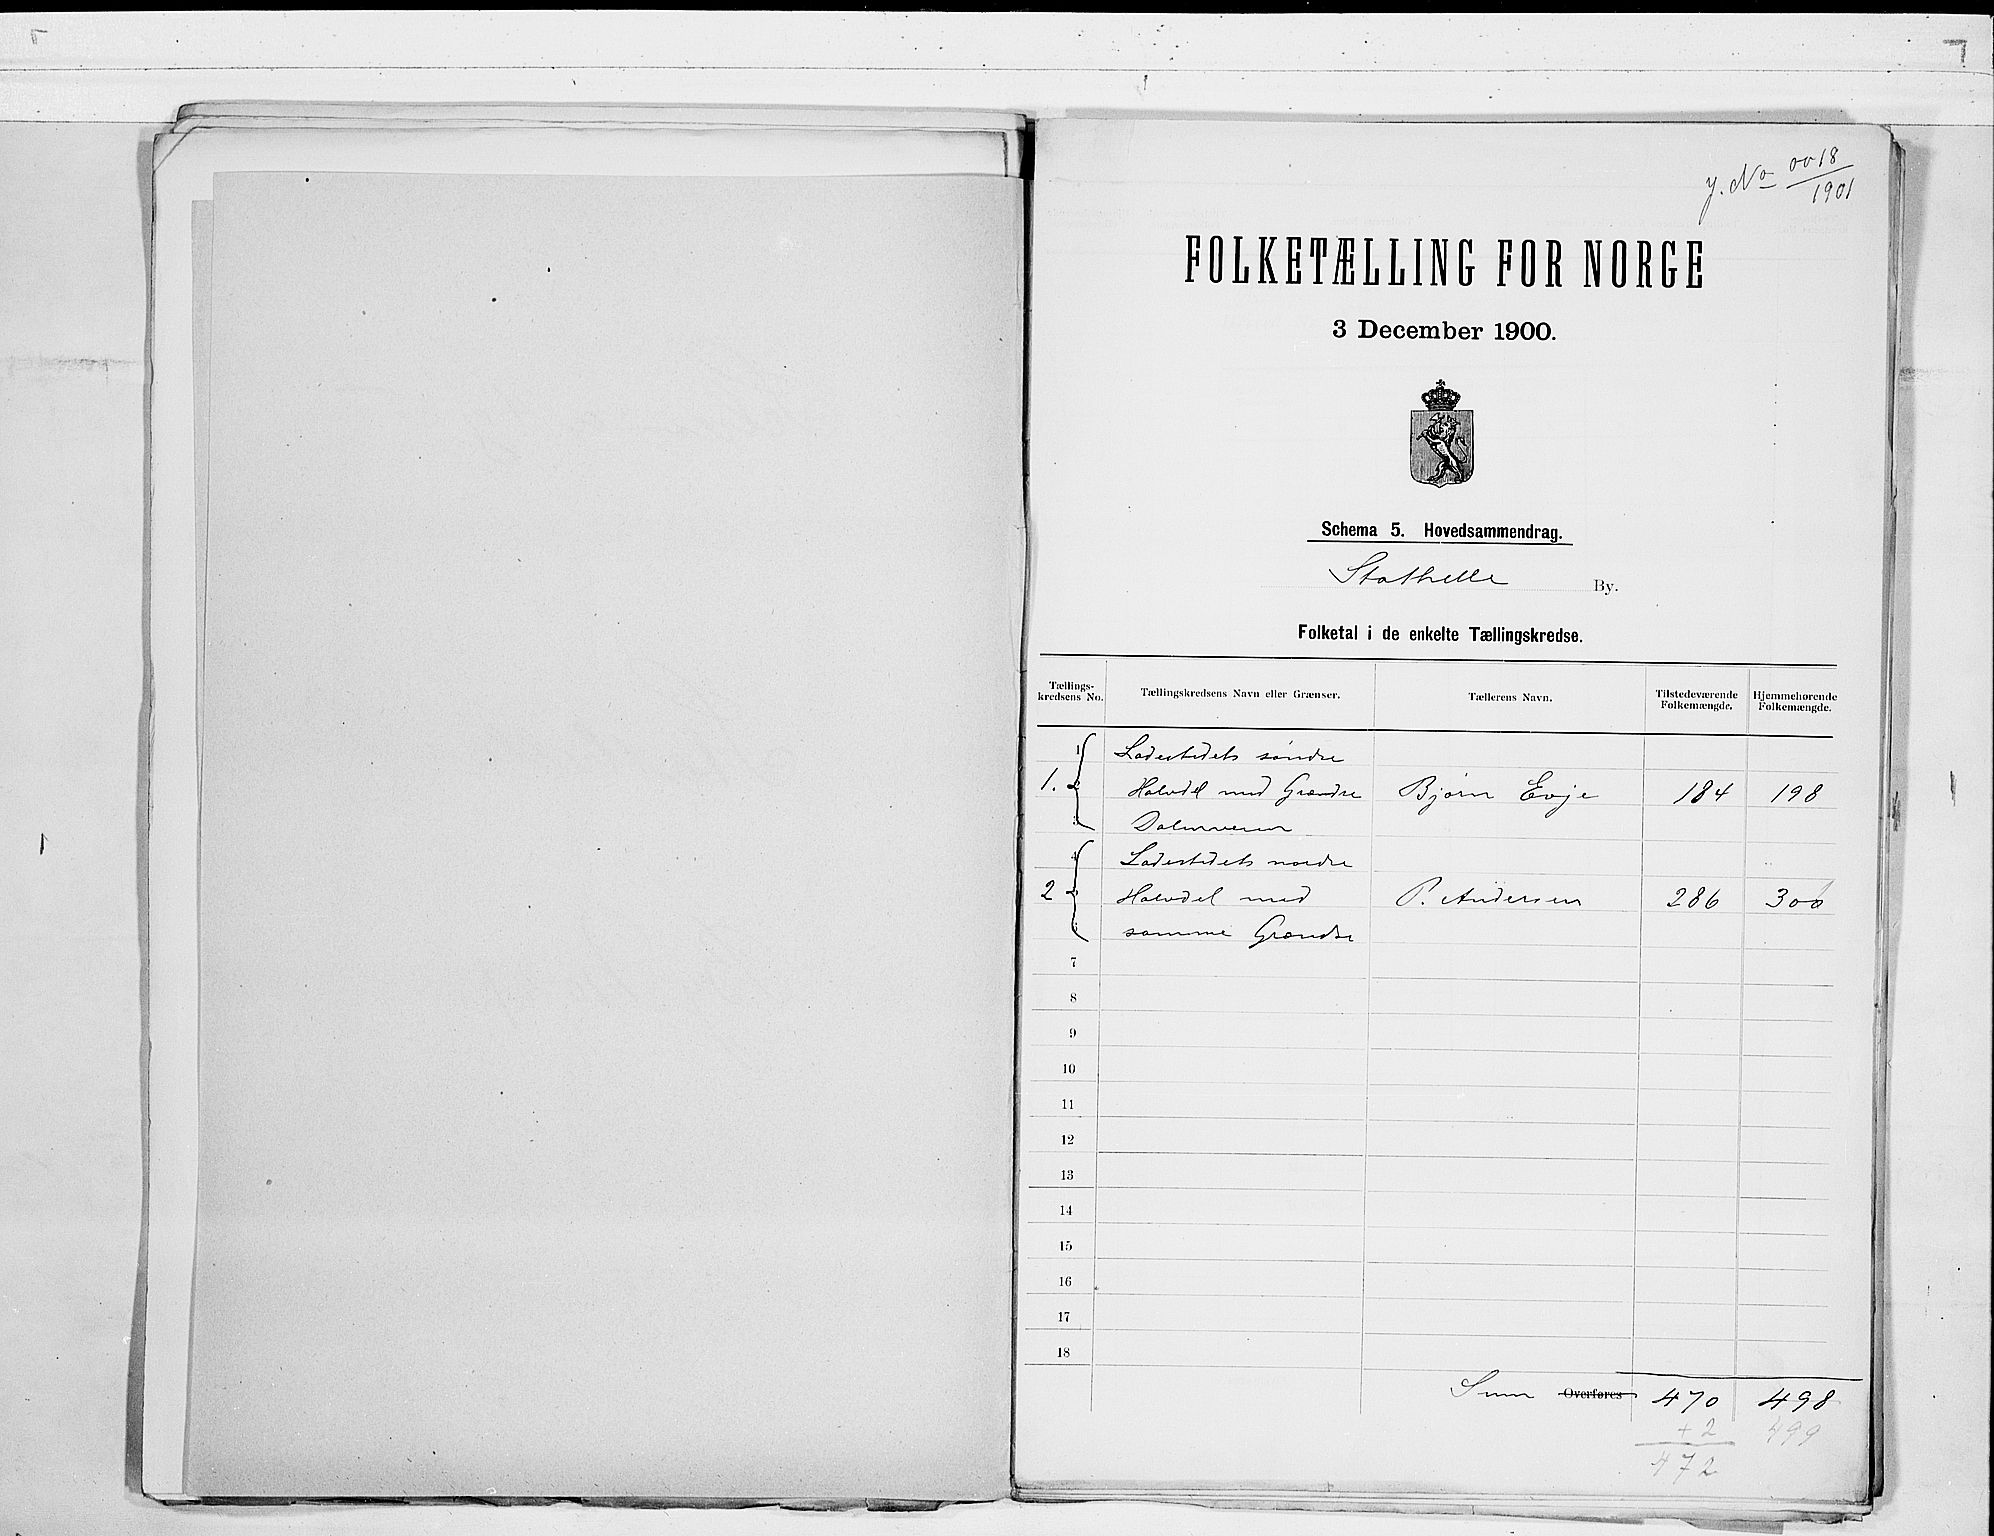 J. No 0018
1901
FOLKETÆLLING FOR NORGE
3 December 1900.
Schema 5. Hovedsammendrag.
Stathelle By.
Folketal i de enkelte Tællingskredse.
Tællings-kredsens No. Tællingskredsens Navn eller Grænser. Tællerens Navn. Tilstedeværende Folkemængde. Hjemmehørende Folkemængde.
1 Ladestedets søndre
1. 2 Halvdel med Grændse Bjørn Evje 184 198
3
4 Ladestedets nordre
2 Halvdel med P. Andersen 286 300
samme Grændse
7
8
9
10
11
12
13
14
15
16
17
18
Sum Overføres 470 498
+2 499
472